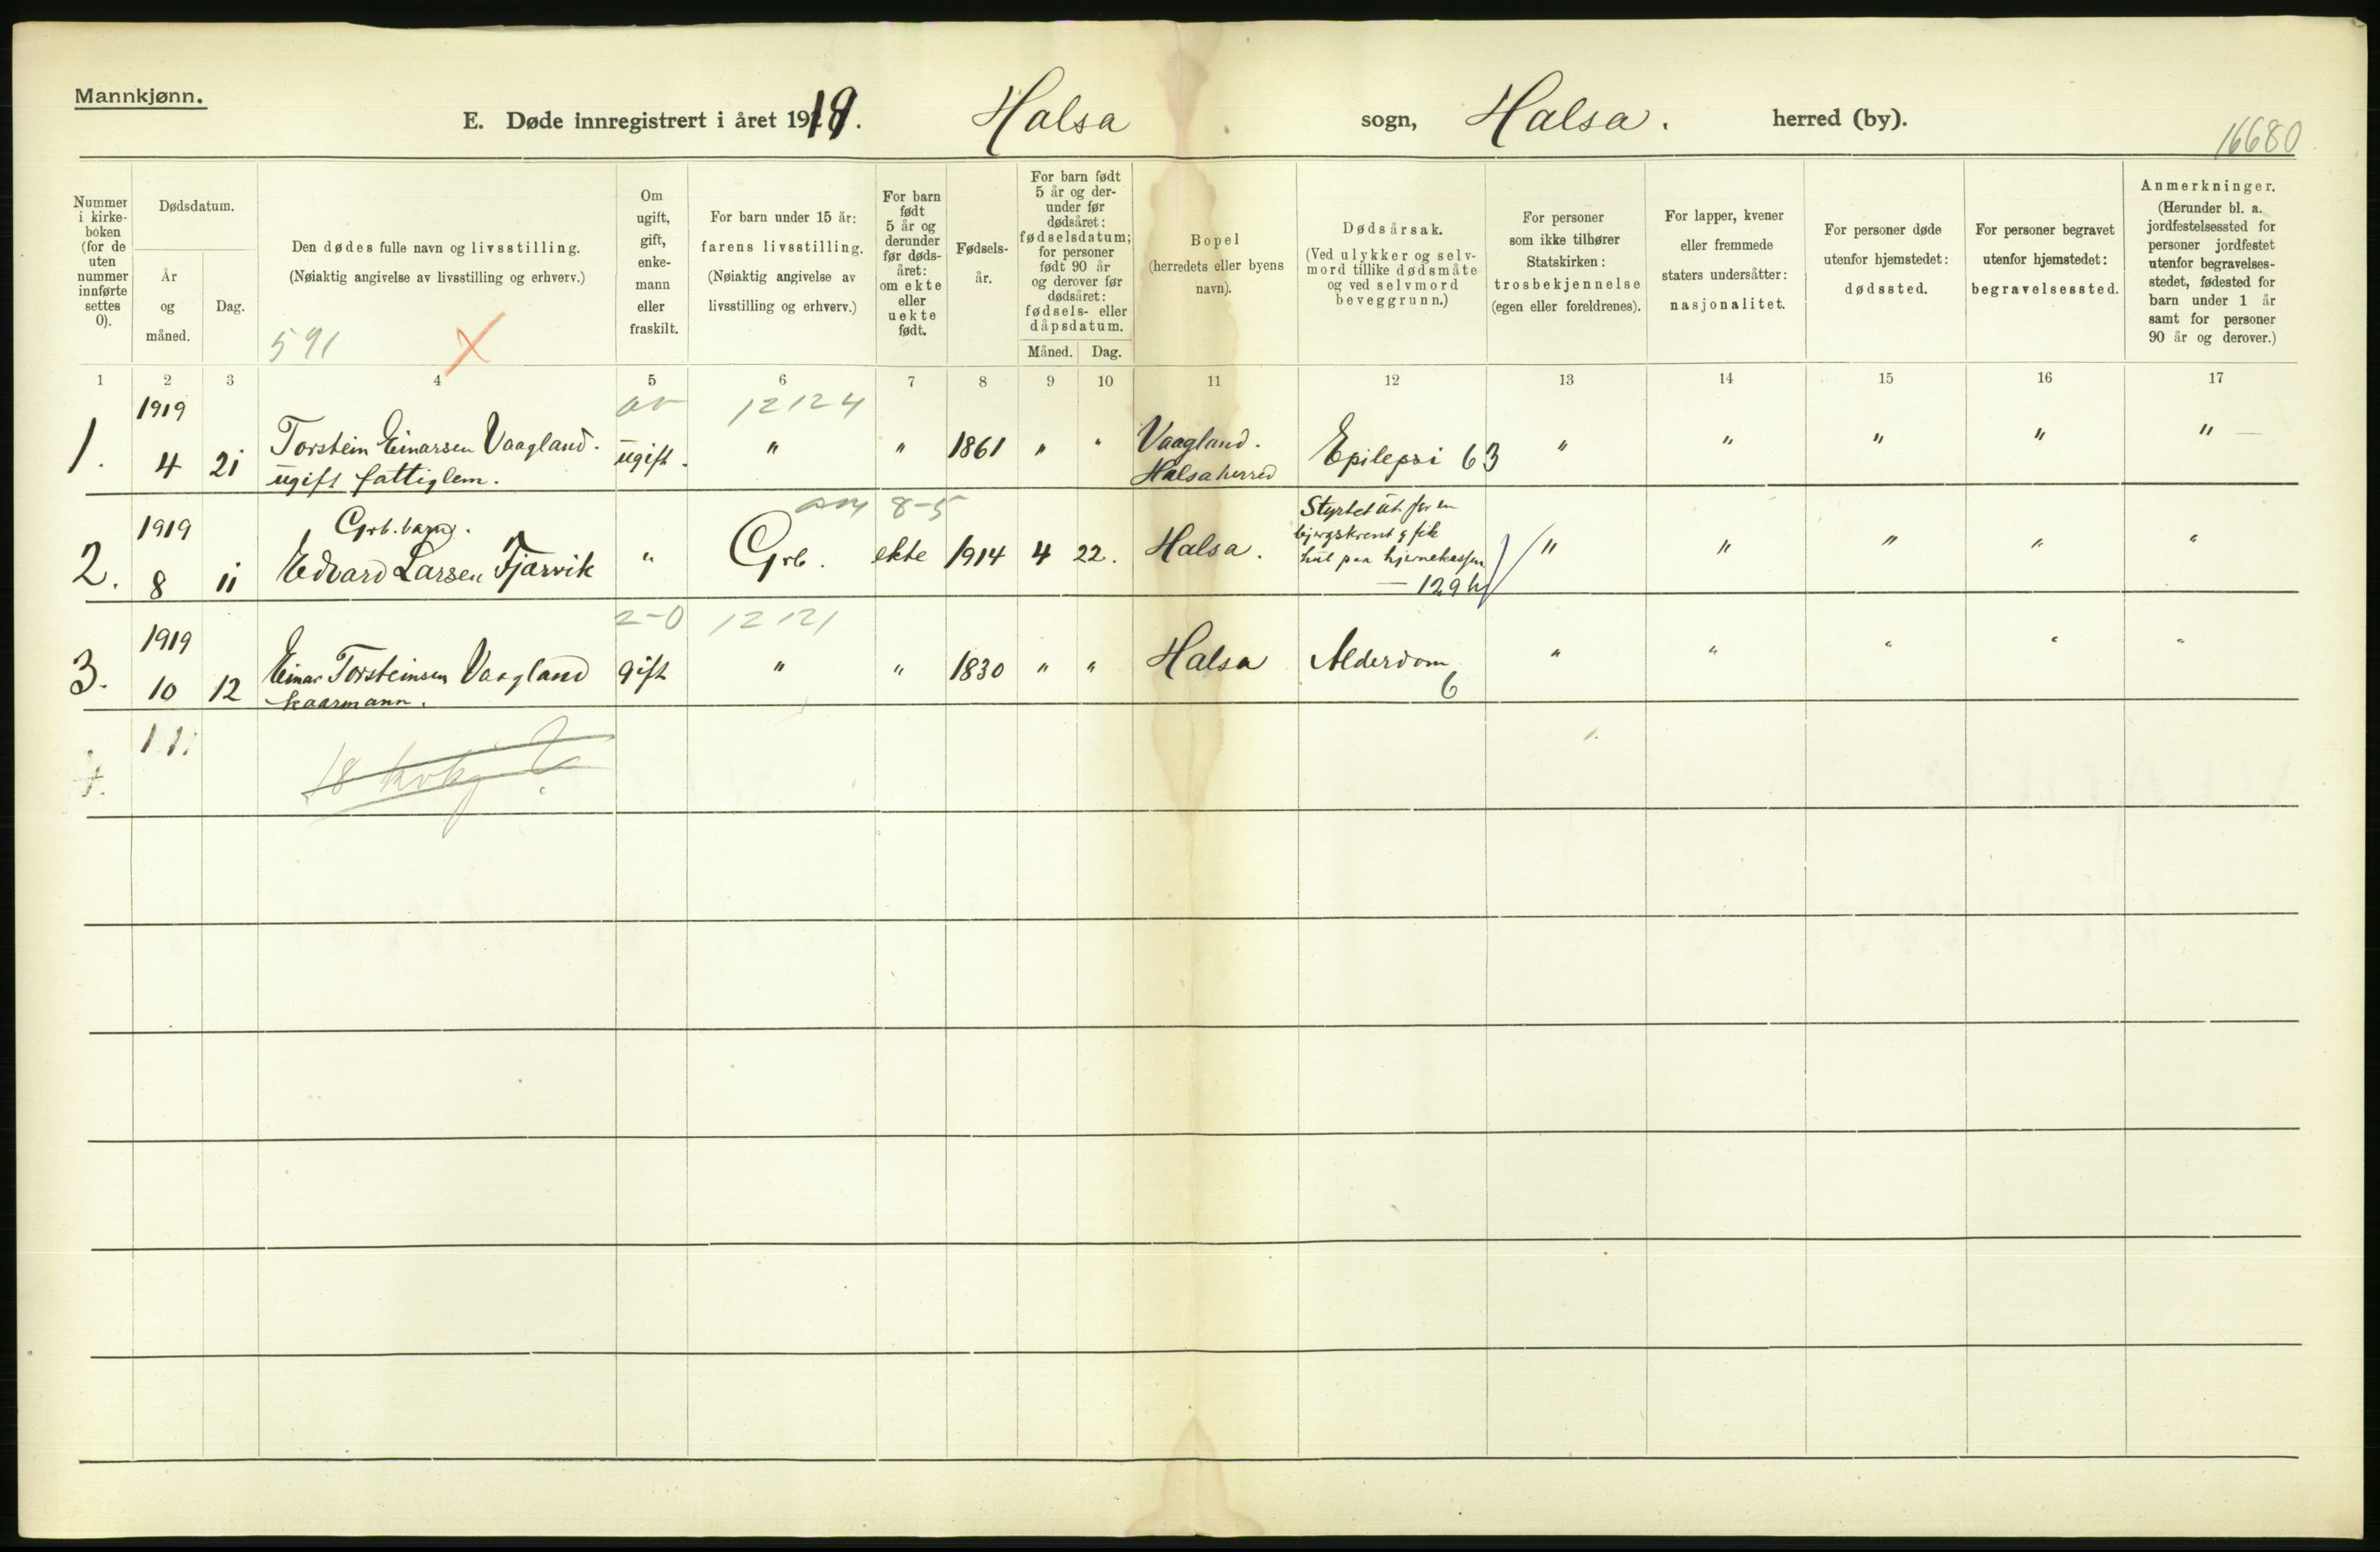 Mannkjønn.
E. Døde innregistrert i året 1919. Halsa sogn, Halsa. herred (by).
16680
Nummer i kirke- boken (for de uten nummer innførte settes 0).
Dødsdatum.
År og måned.
Dag.
Den dødes fulle navn og livsstilling.
(Nøiaktig angivelse av livsstilling og erhverv.)
591 X
Om ugift, gift, enke- mann eller fraskilt.
For barn under 15 år:
farens livsstilling.
(Nøiaktig angivelse av
livsstilling og erhverv.)
For barn født 5 år og derunder før døds- året: om ekte eller uekte født.
Fødsels- år.
For barn født 5 år og der- under før dødsåret: fødselsdatum; for personer født 90 år og derover før dødsåret: fødsels- eller dåpsdatum.
Måned. Dag.
Bopel
(herredets eller byens
navn).
Dødsårsak.
(Ved ulykker og selv-
mord tillike dødsmåte
og ved selvmord
beveggrunn.)
For personer
som ikke tilhører
Statskirken:
trosbekjennelse
(egen eller foreldrenes).
For lapper, kvener
eller fremmede
staters undersåtter:
nasjonalitet.
For personer døde
utenfor hjemstedet:
dødssted.
For personer begravet
utenfor hjemstedet:
begravelsessted.
Anmerkninger.
(Herunder bl. a.
jordfestelsessted for
personer jordfestet
utenfor begravelses-
stedet, fødested for
barn under 1 år
samt for personer
90 år og derover.)
1 2 3 4 5 6 7 8 9 10 11 12 13 14 15 16 17
1919 12124
1. 4 21 Torstein Einarsen Vaagland. ugift. " " 1861 " " Vaagland. Epilepsi 63 " " " " " —
ugift fattiglem. Halsaherred
8-5
1919 Grb. barn. Styrtet ut for en
bjergskrent g fik
2. 8 11 Edvard Larsen Fjærvik " Grb. ekte 1914 4 22. Halsa. hul paa hjernekassen " " " " "
— 129 h
2-0 12121
1919
3. 10 12 Einar Torsteinsen Vaagland gift " " 1830 " " Halsa Alderdom " " " " "
kaarmann. 6
18